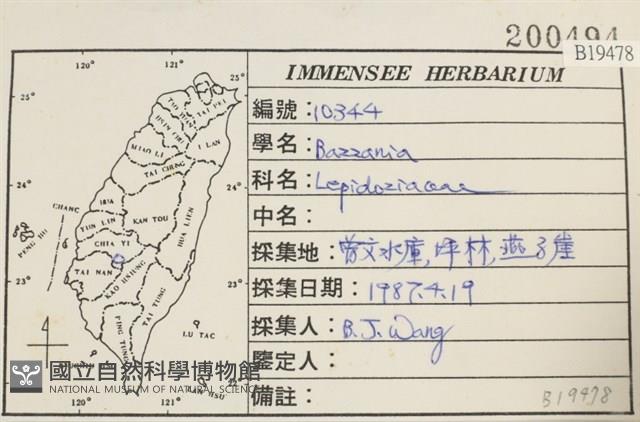 200494
B19478
IMMENSEE HERBARIUM
編號：10344
學名：Bazzania
科名：Lepidoziaceae
中名：
採集地：曾文水庫,坪林,燕子崖
採集日期：1987.4.19
採集人：B.J.Wang
鑒定人：
備註：
B19478
120°
121°
25°
25°
TAI PEI
I LAN
MIAO LI
TAI CHUNG
24°
24°
CHANG
HUA
NAN TOU
YUN LIN
HUA LIEN
PENG HU
CHIA YI
TAI NAN
KAO HSIUNG
23°
23°
TAI TUNG
PING TUNG
LU TAO
國立自然科學博物館
NATIONAL MUSEUM OF NATURAL SCIENCE